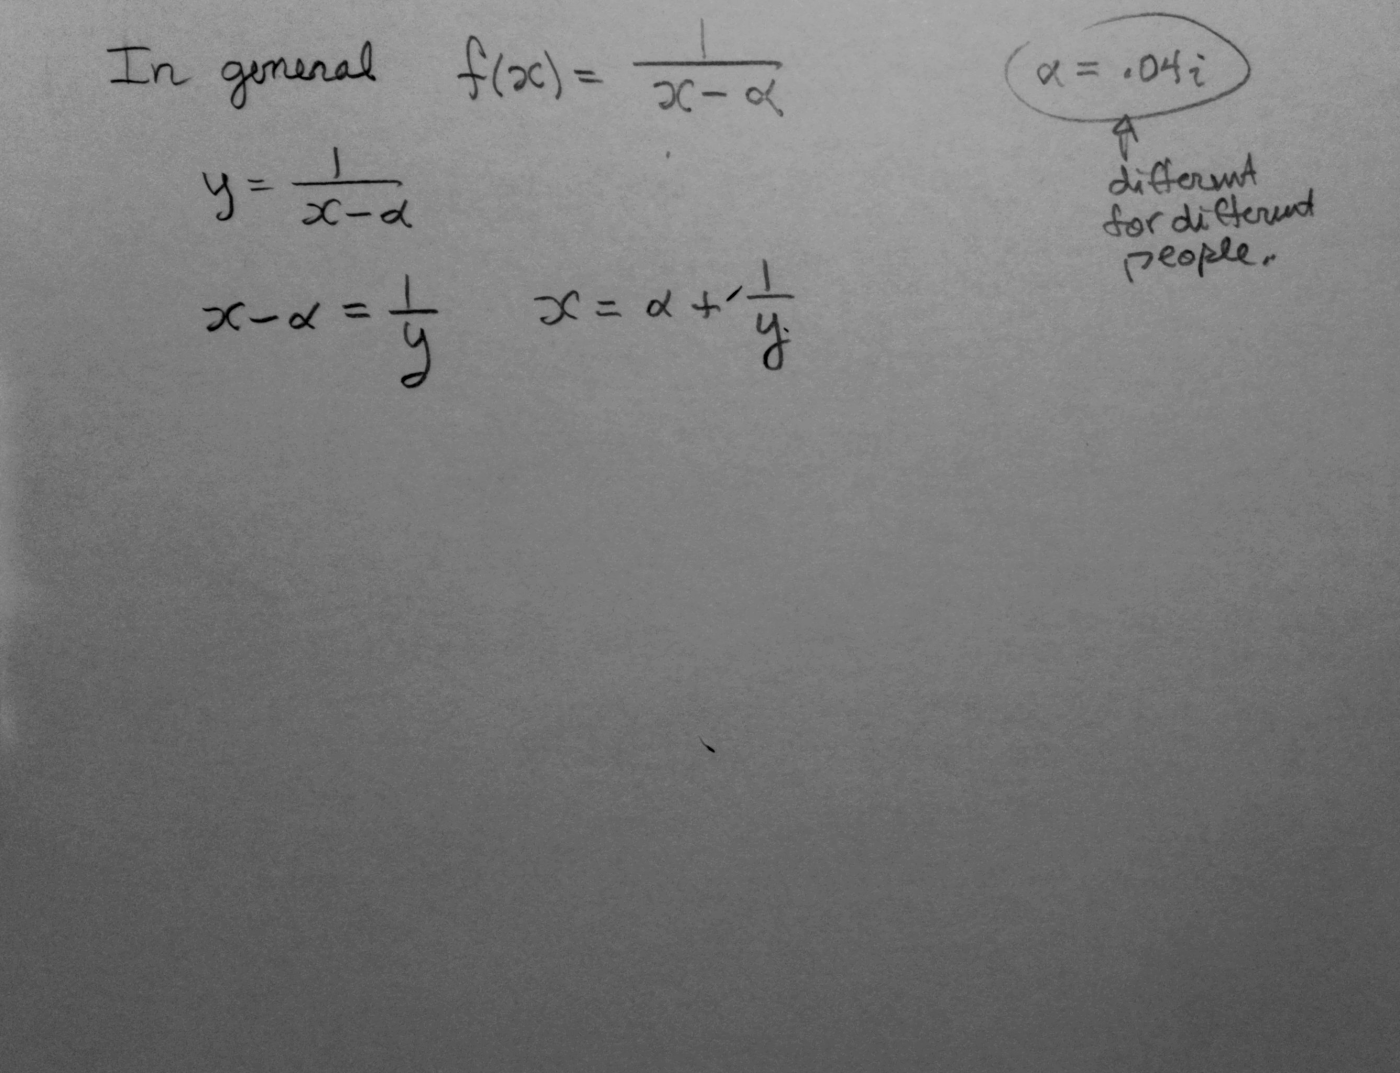 In general f(x) = 1/(x - α)
α = .04i
different
for different
people.
y = 1/(x - α)
x - α = 1/y x = α + 1/y